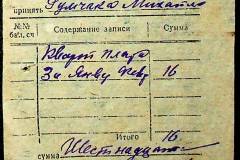 принять Гулчака Михайло
№№ бал. сч Содержание записи Сумма
Кварт плата
За Январь Февр 16
Итого 16
сумма Шестнадцать